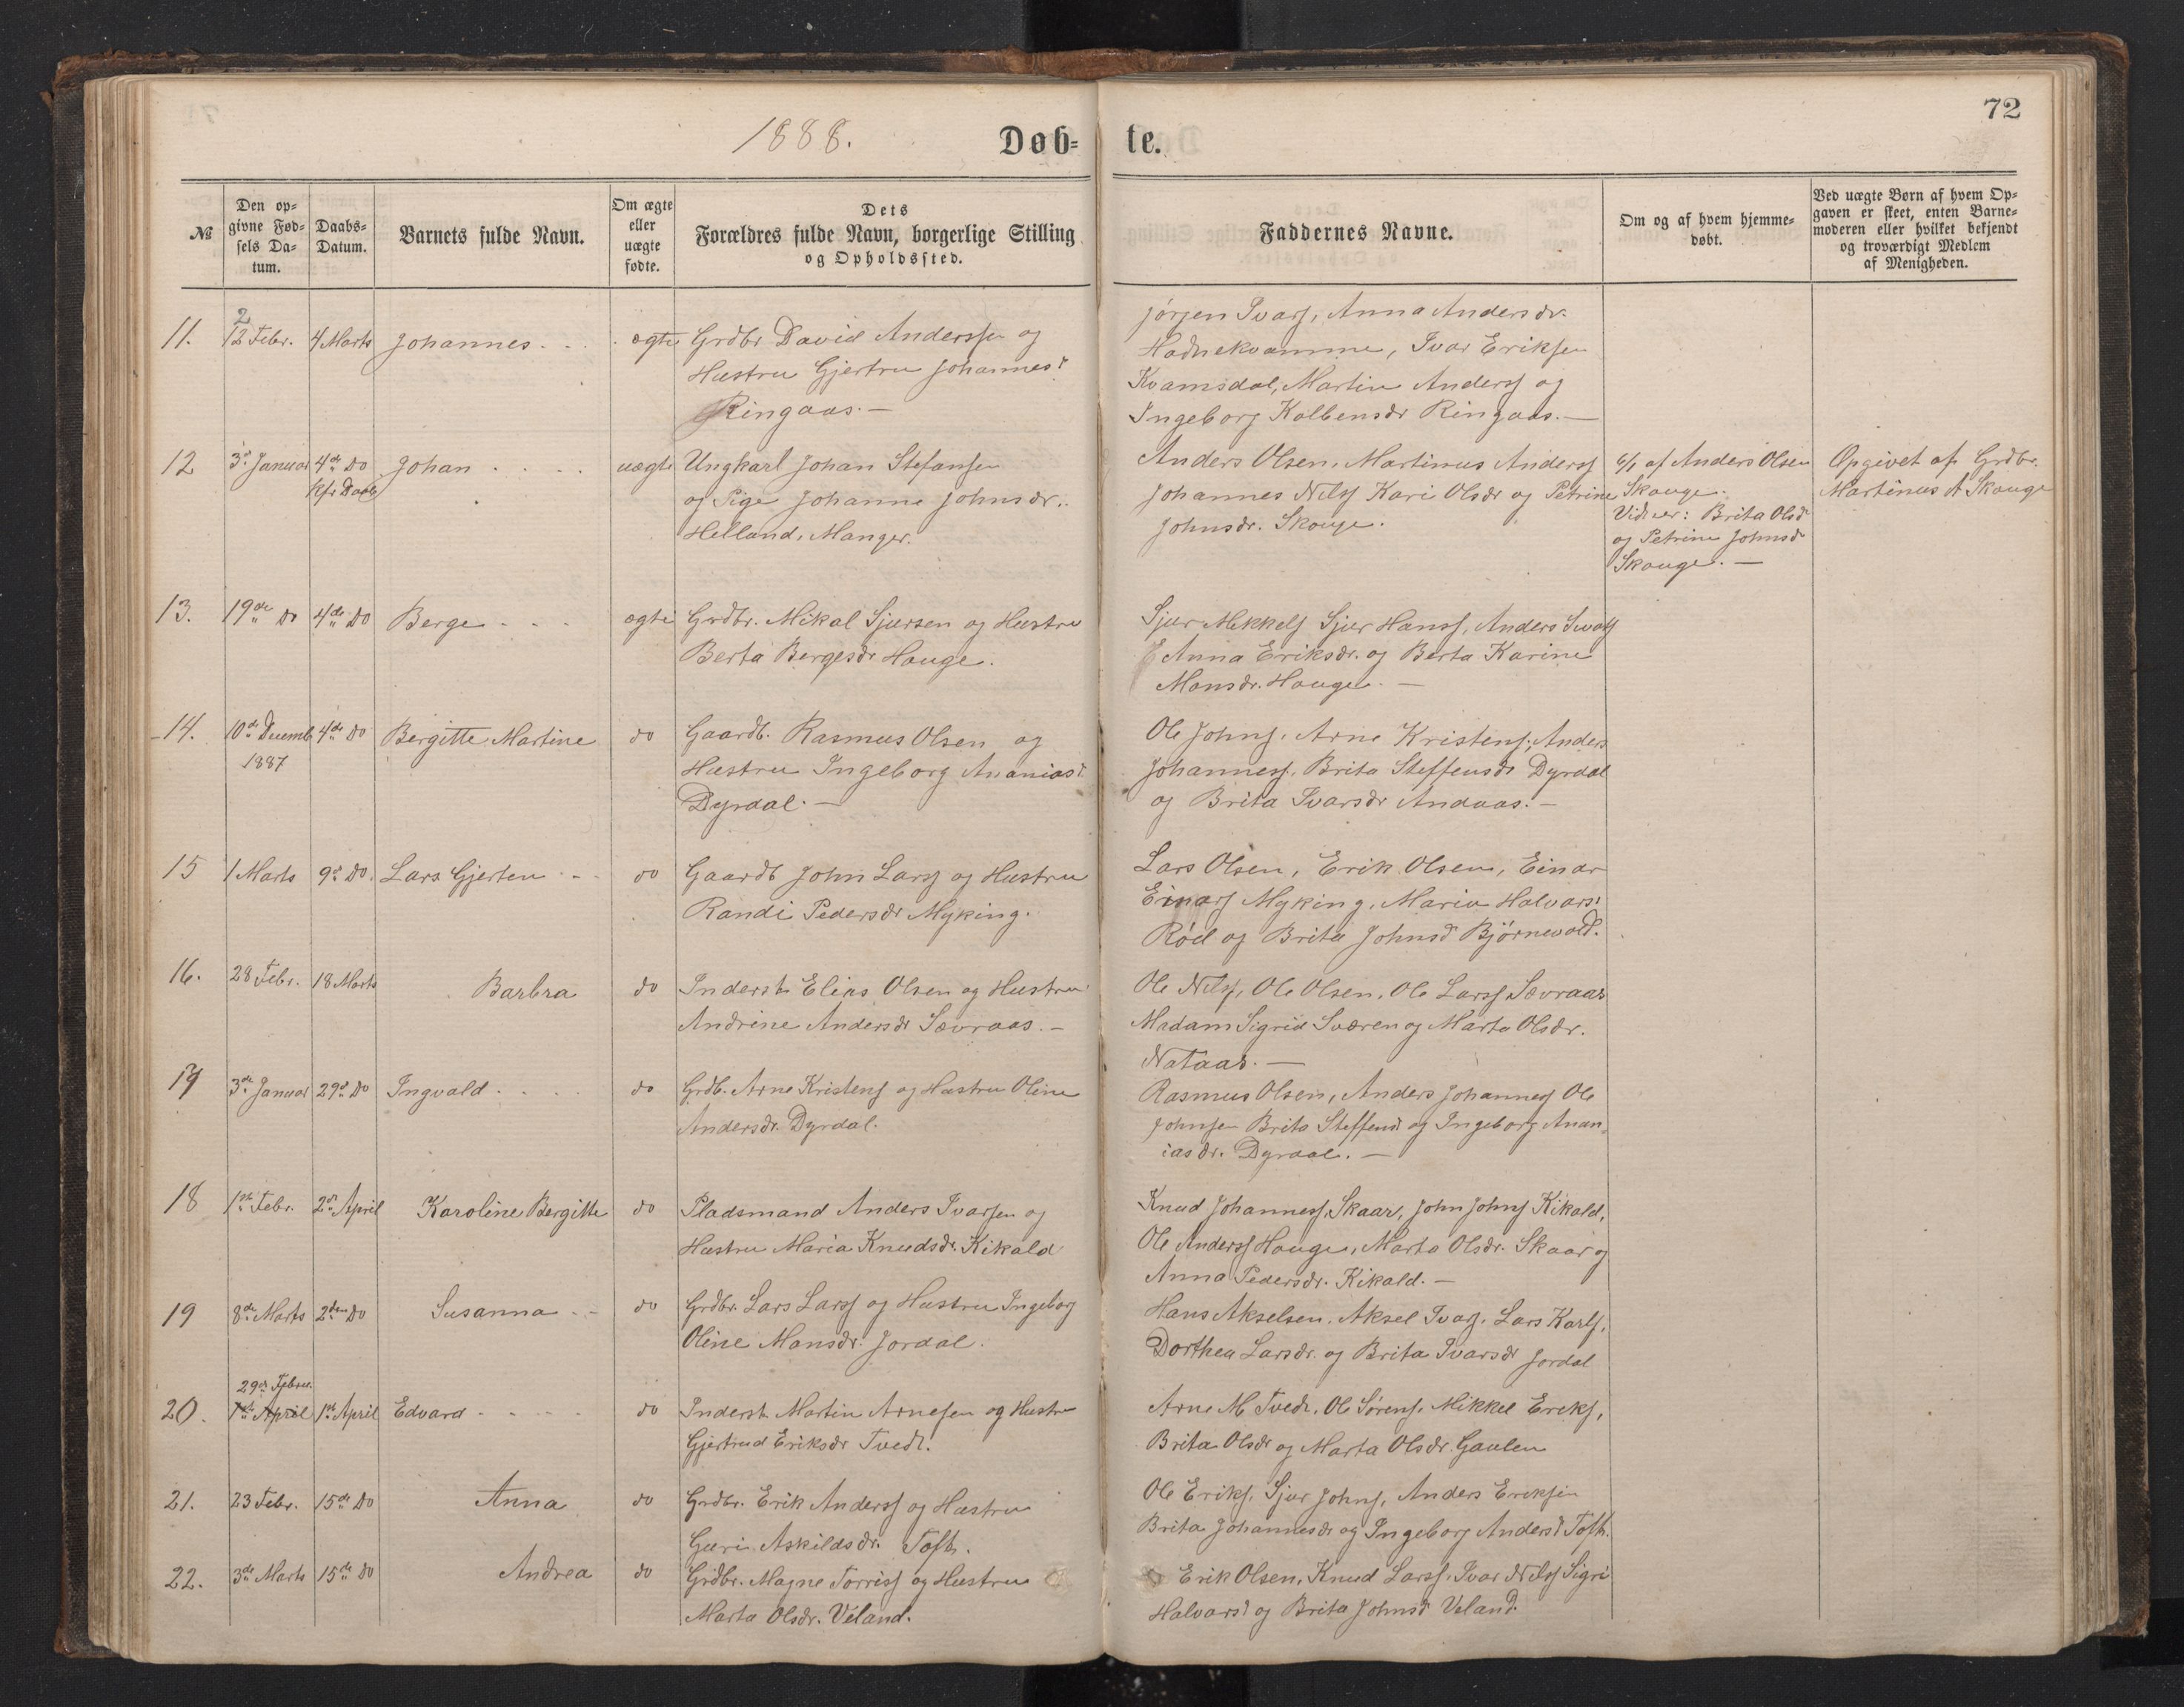 72
1888.
Døb= te.
№
Den op=
givne Fød=
sels Da=
tum.
Daabs=
Datum.
Barnets fulde Navn.
Om ægte
eller
uægte
fødte.
Dets
Forældres fulde Navn, borgerlige Stilling
og Opholdssted.
Faddernes Navne.
Om og af hvem hjemme=
døbt.
Ved uægte Børn af hvem Op=
gaven er skeet, enten Barne=
moderen eller hvilket bekjendt
og troværdigt Medlem
af Menigheden.
11. 12 Febr. 4 Marts Johannes ægte Grdbr David Anderssen og
2
Hustru Gjertru Johannesd
Ringaas.—
Jørgen Ivars, Anna Andersdr.
Hodnekvamme, Ivar Eriksen
Kvamsdal, Martin Anderss og
Ingeborg Kolbensdr Ringaas.—
12 3d Januar 4de Do Johan uægte Ungkarl Johan Stefansen
Kfr Daab
og Pige Johanne Johnsdr.
Helland, Manger.
Anders Olsen, Martinus Anderss
Johannes Nilss Kari Olsdr og Petrine
Johnsdr. Skouge.
6/1 af Anders Olsen
Skouge.
Vidner: Brita Olsd
og Petrine Johnsd
Skouge.—
Opgivet af Grdbr.
Martinus A Skouge
13. 19de Do 4de Do Berge ægte Grdbr. Mikal Sjursen og Hustru
Berta Bergesdr Houge.
Sjur Mikkels Sjur Hanss, Anders
Anna Eriksdr. og Berta Karine
Monsdr. Houge.—
14. 10de Decemb 4de Do Bergitte Martine do Gaardb. Rasmus Olsen og
1887
Hustru Ingeborg Ananiasd
Dyrdal.—
Ole Johns. Arne Kristens, Anders
Johanness, Brita Steffensdr Dyrdal
og Brita Ivarsdr Andaas.—
15 1 Marts 9d Do. Lars Gjerten do Gaardb John Larss og Hustru
Randi Pedersdr Myking.
Lars Olsen, Erik Olsen, Einar
Einars Myking, Maria Halvorsd
Röd og Brita Johnsd Bjørnevold.
16. 28 Febr. 18 Marts Barbra do Inderst Elias Olsen og Hustru
Andrine Andersdr Sævraas.—
Ole Nilss, Ole Olsen, Ole Larss Sævraas
Madam Sigrid Sværen og Marta Olsdr.
Nataas.—
17 3de Januar 29d Do Ingvald do Grdb. Arne Kristens og Hustru Oline
Andersdr. Dyrdal.
Rasmus Olsen, Anders Johanness Ole
Johnsen Brita Steffensd og Ingeborg Anan-
iasdr. Dyrdal.—
18 1st Febr. 2den April Karoline Bergitte do Pladsmand Anders Ivarsen og
Hustru Maria Knudsdr. Kikald
Knud Johanness, Skaar, John Johns Kikald,
Ole Anderss Houge, Marta Olsdr. Skaar og
Anna Pedersdr. Kikald.—
19 8de Marts 2den Do Susanna do Grdbr. Lars Larss og Hustru Ingeborg
Oline Monsdr. Jordal.
Hans Akselsen. Aksel Ivars. Lars Karls,
Dorthea Larsdr. og Brita Ivarsdr Jordal
29de Febru.
20. 1st April 1st April Edvard do Inderst Martin Arnesen og Hustru
Gjertrud Eriksdr Tvedt.
Arne M Tvedt, Ole Sørens, Mikkel Ericks,
Brita Olsdr og Marta Olsdr. Gaulen
21. 23 Febr. 15de Do Anna do Grdbr. Erik Anderss og Hustru
Guri Askildsdr. Toft.
Ole Eriks, Sjur Johns, Anders Eriksen
Brita Johannesdr og Ingeborg Andersd Toft.
22. 3de Marts 15de Do Andrea do Grdbr. Magne Torriss og Hustru
Marta Olsdr. Veland.
Erik Olsen, Knud Larss, Ivar Nilss Sigri
Halvorsd og Brita Johnsd Veland.